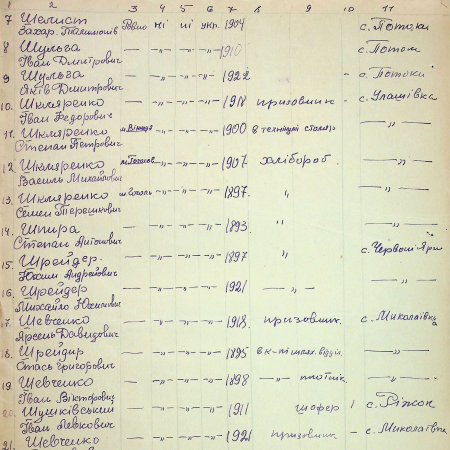 1 2 3 4 5 6 7 8 9 10 11
7 Шелист Рівно ні ні укр. 1904 с. Потоки
Захар
8 Шульга — " — — " — — " — 1910 — с. Потоки
Іван Дмитрович
9 Шульга — " — — " — — " — 1922 — с. Потоки
Яків Дмитрович
10. Шкляренко — " — — " — — " — 1918 призовник — с. Улашівка
Іван Федорович
11. Шкляренко — " — — " — 1900 — " —
Степан Петрович
12 Шкляренко — " — — " — 1907 хлібороб — " —
Василь Михайлович
13. Шкляренко — " — — " — 1897. " — " —
Семен Терешкович
14. Шпира — " — — " — — " — 1893. " — " —
Степан Антонович
15. Шрейдер. — " — — " — — " — 1897 " с. Червоні Яри
Юхим Андрейович
16. Шрейдер — " — — " — — " — 1921 — " — — " —
Михайло Юхимович
17. Шевченко — " — — " — — " — 1918. призовник. с. Миколаївка
Арсень Давидович
18. Шрейдир — " — — " — — " — 1895 — " —
Стась Григорович
19 Шевченко — " — — " — — " — 1898 — " — плотнік — " —
Іван Вікторович
20. Шушківський — " — — " — — " — 1911 шофер 1 с. Ріжок
Іван Левкович
21. Шевченко — " — — " — — " — 1921 призовник — с. Миколаївка